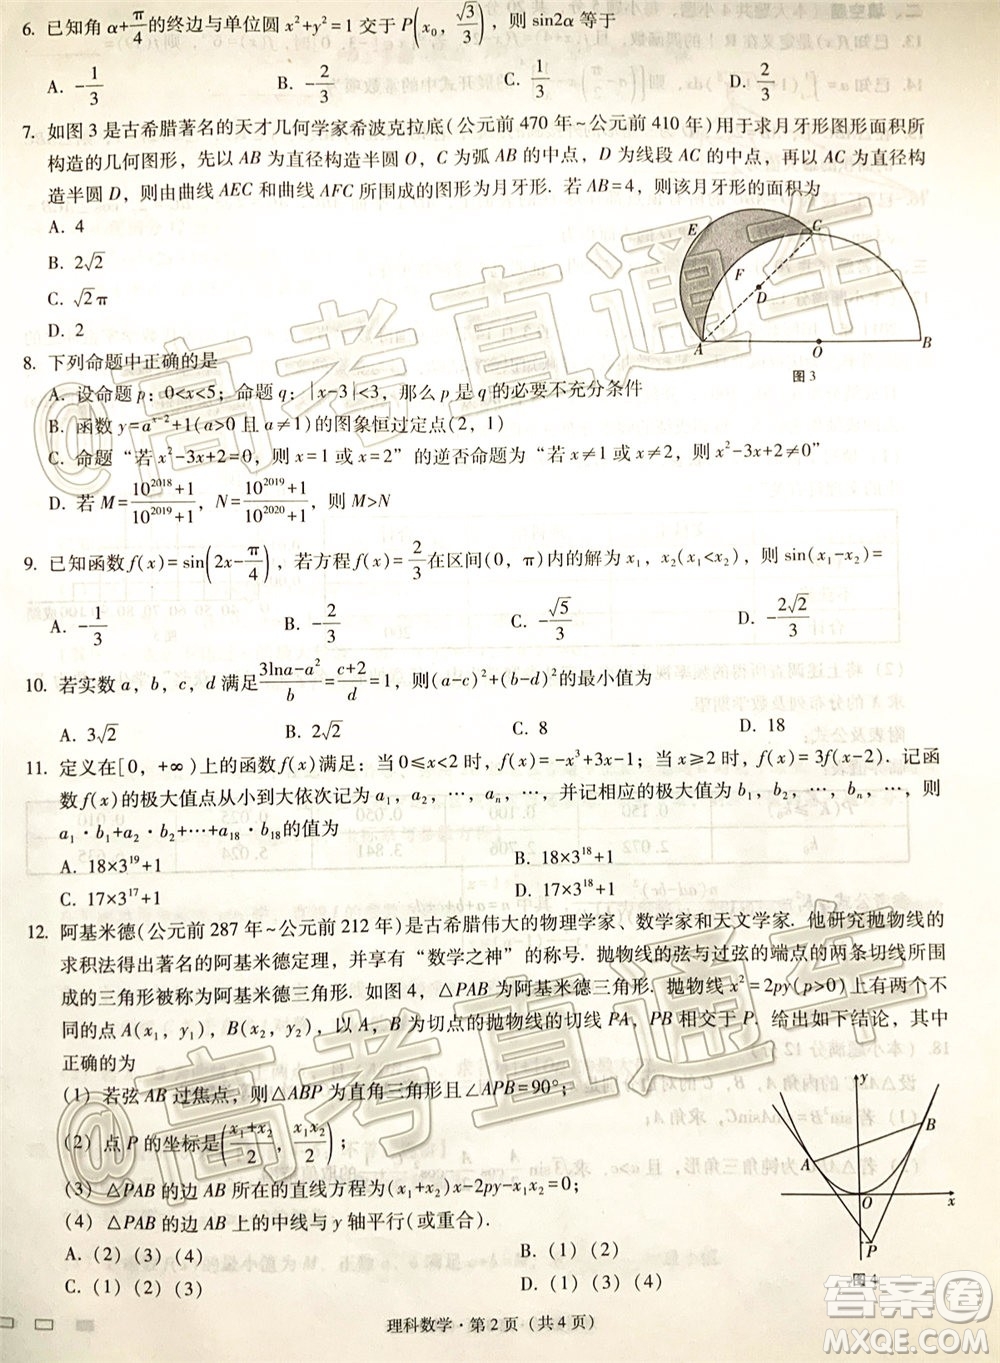 6. 已知角 α+π/4 的终边与单位圆 x²+y²=1 交于 P(x₀, √3/3), 则 sin2α 等于
A. -1/3 B. -2/3 C. 1/3 D. 2/3
7. 如图 3 是古希腊著名的天才几何学家希波克拉底(公元前 470 年~公元前 410 年)用于求月牙形图形面积所
构造的几何图形, 先以 AB 为直径构造半圆 O, C 为弧 AB 的中点, D 为线段 AC 的中点, 再以 AC 为直径构
造半圆 D, 则由曲线 AEC 和曲线 AFC 所围成的图形为月牙形. 若 AB=4, 则该月牙形的面积为
A. 4
B. 2√2
C. √2π
D. 2
E C F D A O B
图 3
8. 下列命题中正确的是
A. 设命题 p: 0<x<5; 命题 q: |x-3|<3, 那么 p 是 q 的必要不充分条件
B. 函数 y=aˣ⁻²+1(a>0 且 a≠1)的图象恒过定点(2, 1)
C. 命题“若 x²-3x+2=0, 则 x=1 或 x=2”的逆否命题为“若 x≠1 或 x≠2, 则 x²-3x+2≠0”
D. 若 M=(10²⁰¹⁸+1)/(10²⁰¹⁹+1), N=(10²⁰¹⁹+1)/(10²⁰²⁰+1), 则 M>N
9. 已知函数 f(x)=sin(2x-π/4), 若方程 f(x)=2/3 在区间(0, π)内的解为 x₁, x₂(x₁<x₂), 则 sin(x₁-x₂)=
A. -1/3 B. -2/3 C. -√5/3 D. -2√2/3
10. 若实数 a, b, c, d 满足 (3lna-a²)/b=(c+2)/d=1, 则(a-c)²+(b-d)²的最小值为
A. 3√2 B. 2√2 C. 8 D. 18
11. 定义在[0, +∞)上的函数 f(x)满足: 当 0≤x<2 时, f(x)=2x-x²; 当 x≥2 时, f(x)=3f(x-2). 记函
数 f(x)的极大值点从小到大依次记为 a₁, a₂, …, aₙ, …, 并记相应的极大值为 b₁, b₂, …, bₙ, …, 则
a₁·b₁+a₂·b₂+…+a₁₈·b₁₈的值为
A. 18×3¹⁹+1 B. 18×3¹⁸+1
C. 17×3¹⁷+1 D. 17×3¹⁸+1
12. 阿基米德(公元前 287 年~公元前 212 年)是古希腊伟大的物理学家、数学家和天文学家. 他研究抛物线的
求积法得出著名的阿基米德定理, 并享有“数学之神”的称号. 抛物线的弦与过弦的端点的两条切线所围
成的三角形被称为阿基米德三角形. 如图 4, △PAB 为阿基米德三角形. 抛物线 x²=2py(p>0)上有两个不
同的点 A(x₁, y₁), B(x₂, y₂), 以 A, B 为切点的抛物线的切线 PA, PB 相交于 P. 给出如下结论, 其中
正确的为
(1) 若弦 AB 过焦点, 则△ABP 为直角三角形且∠APB=90°;
(2) 点 P 的坐标是((x₁+x₂)/2, x₁x₂/2);
(3) △PAB 的边 AB 所在的直线方程为(x₁+x₂)x-2py-x₁x₂=0;
(4) △PAB 的边 AB 上的中线与 y 轴平行(或重合).
A. (2) (3) (4) B. (1) (2)
C. (1) (2) (3) D. (1) (3) (4)
y B A O x P
图 4
理科数学·第 2 页 (共 4 页)
@高考直通车
@高考直通车
答案圈
MXQE.COM